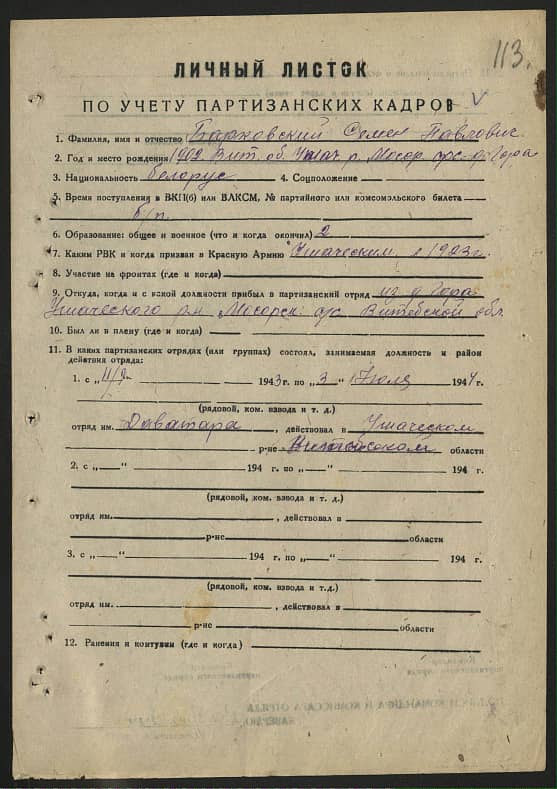 113.
ЛИЧНЫЙ ЛИСТОК
ПО УЧЕТУ ПАРТИЗАНСКИХ КАДРОВ V
1. Фамилия, имя и отчество Барковский Семен Павлович.
2. Год и место рождения 1902 Вит. об. Ушач. р. Мосор. с/с д. Гора
3. Национальность белорус 4. Соцположение
5. Время поступления в ВКП(б) или ВЛКСМ, № партийного или комсомольского билета
б/п.
6. Образование: общее и военное (что и когда окончил) 2
7. Каким РВК и когда призван в Красную Армию Ушаческим. в 1923 г.
8. Участие на фронтах (где и когда)
9. Откуда, когда и с какой должности прибыл в партизанский отряд из д. Гора
Ушаческого р-н Мосорск. с/с Витебской обл.
10. Был ли в плену (где и когда)
11. В каких партизанских отрядах (или группах) состоял, занимаемая должность и район
действия отряда:
1. с „ 1943 г. по „3“ Июля 1944 г.
(рядовой, ком. взвода и т. д.)
отряд им. Даватара, действовал в Ушаческом
р-не Витебском области
2. с „—“ 194 г. по „—“ 194 г.
(рядовой, ком. взвода и т. д.)
отряд им. , действовал в
р-не области
3. с „—“ 194 г. по „—“ 194 г.
(рядовой, ком. взвода и т.д.)
отряд им. , действовал в
р-не области
12. Ранения и контузии (где и когда)